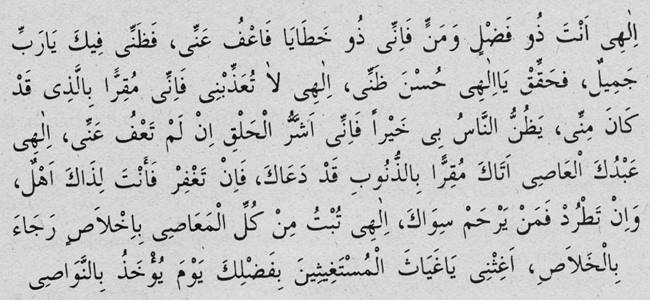 اِلٰهِى اَنْتَ ذُو فَضْلٍ وَمَنٍّ فَاِنِّى ذُو خَطَايَا فَاعْفُ عَنِّى، فَظَنِّى فِيكَ يَارَبِّ
جَمِيلٌ، فَحَقِّقْ يَااِلٰهِى حُسْنَ ظَنِّى، اِلٰهِى لاٰ تُعَذِّبْنِى فَاِنِّى مُقِرًّا بِالَّذِى قَدْ
كَانَ مِنِّى، يَظُنُّ النَّاسُ بِى خَيْراً فَاِنِّى اَشَرُّ الْخَلْقِ اِنْ لَمْ تَعْفُ عَنِّى، اِلٰهِى
عَبْدُكَ الْعَاصِى اَتَاكَ مُقِرًّا بِالذُّنُوبِ قَدْ دَعَاكَ، فَاِنْ تَغْفِرْ فَأَنْتَ لِذَاكَ اَهْلٌ،
وَاِنْ تَطْرُدْ فَمَنْ يَرْحَمْ سِوَاكَ، اِلٰهِى تُبْتُ مِنْ كُلِّ الْمَعَاصِى بِاِخْلاَصٍ رَجَاءَ
بِالْخَلاَصِ، اَغِثْنِى يَاغِيَاثَ الْمُسْتَغِيثِينَ بِفَضْلِكَ يَوْمَ يُؤْخَذُ بِالنَّوَاصِى